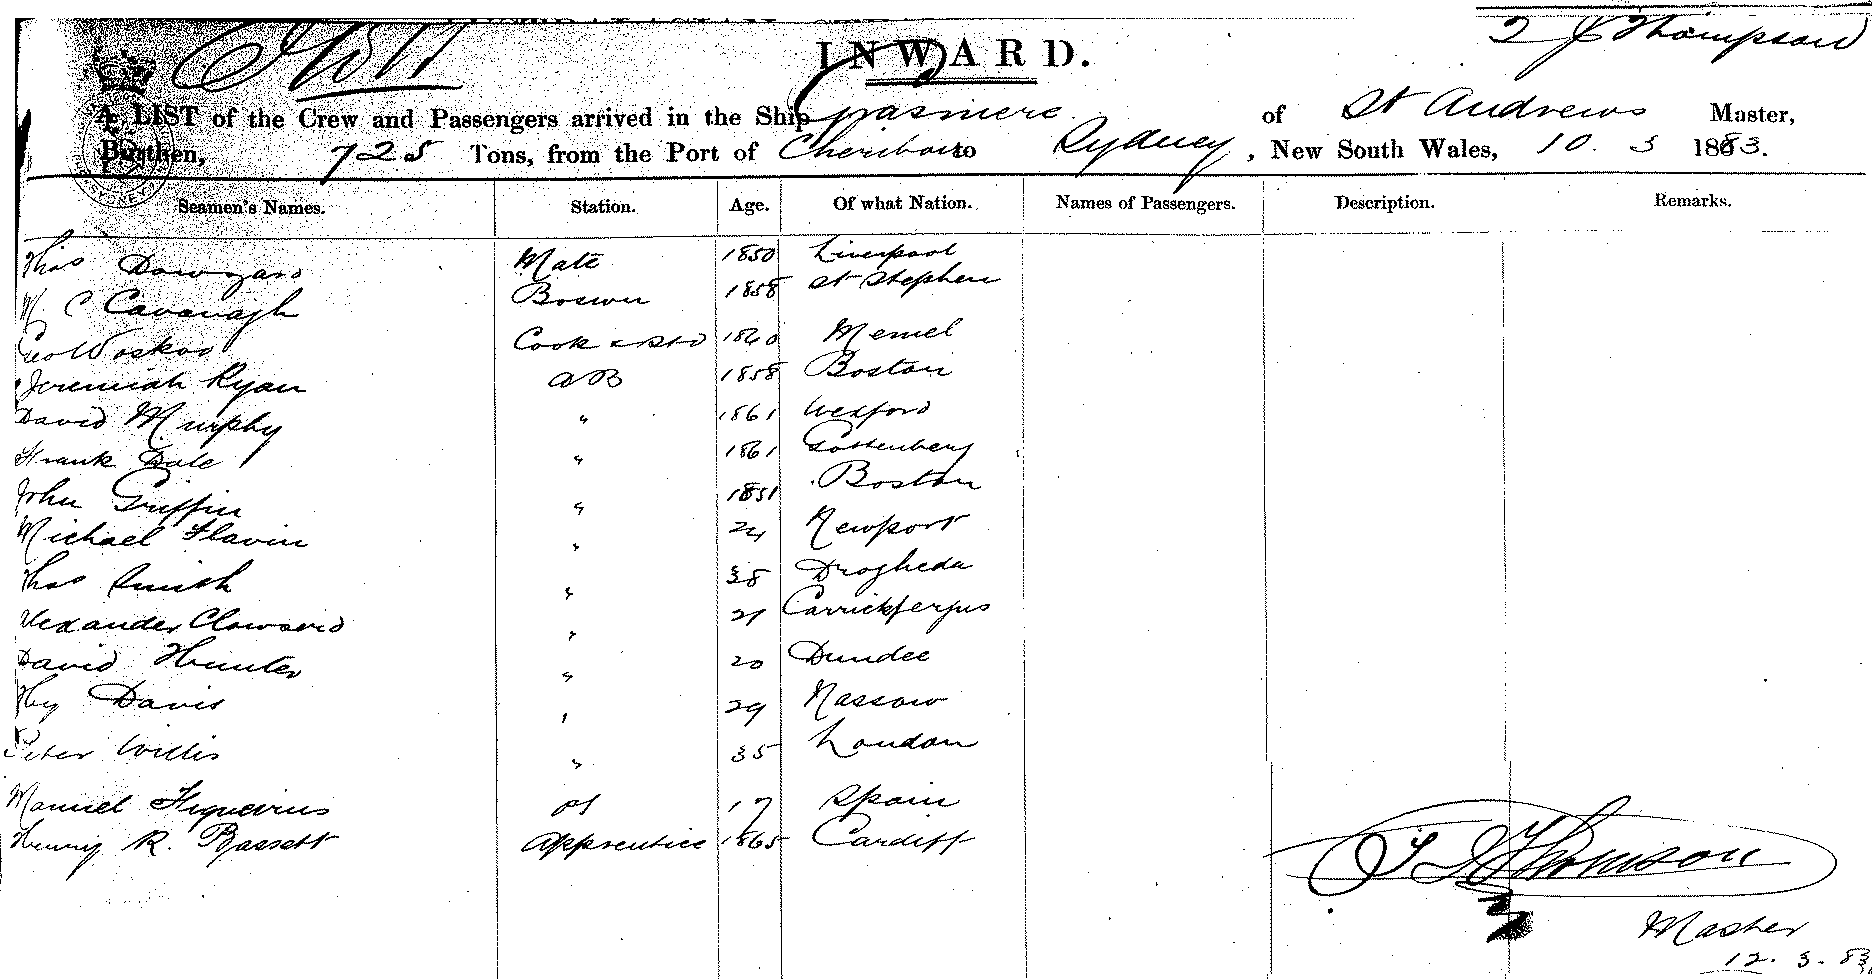 INWARD.
J Thompson
A LIST of the Crew and Passengers arrived in the Ship Grasmere of St Andrews Master,
Burthen, 725 Tons, from the Port of Cheribon to Sydney, New South Wales, 10. 3 1883.
Seamen's Names. Station. Age. Of what Nation. Names of Passengers. Description. Remarks.
Thos Mate 1850 Liverpool
M. C Cavanagh Boswn 1858 St Stephen
Geo Woskos Cook & Std 1860 Memel
Jeremiah Ryan AB 1858 Boston
David Murphy " 1861 Wexford
Frank Dale " 1861 Gottenberg
John Griffin " 1851 Boston
Michael Flavin " 24 Newport
Thos Smith " 38 Drogheda
Alexander " 21 Carrickfergus
David Hunter " 20 Dundee
Hy Davis " 29 Nassow
Peter Willis " 35 London
Manuel 17 Spain
Henry R. Bassett Apprentice 1865 Cardiff
Thomson
Master
12. 3. 83